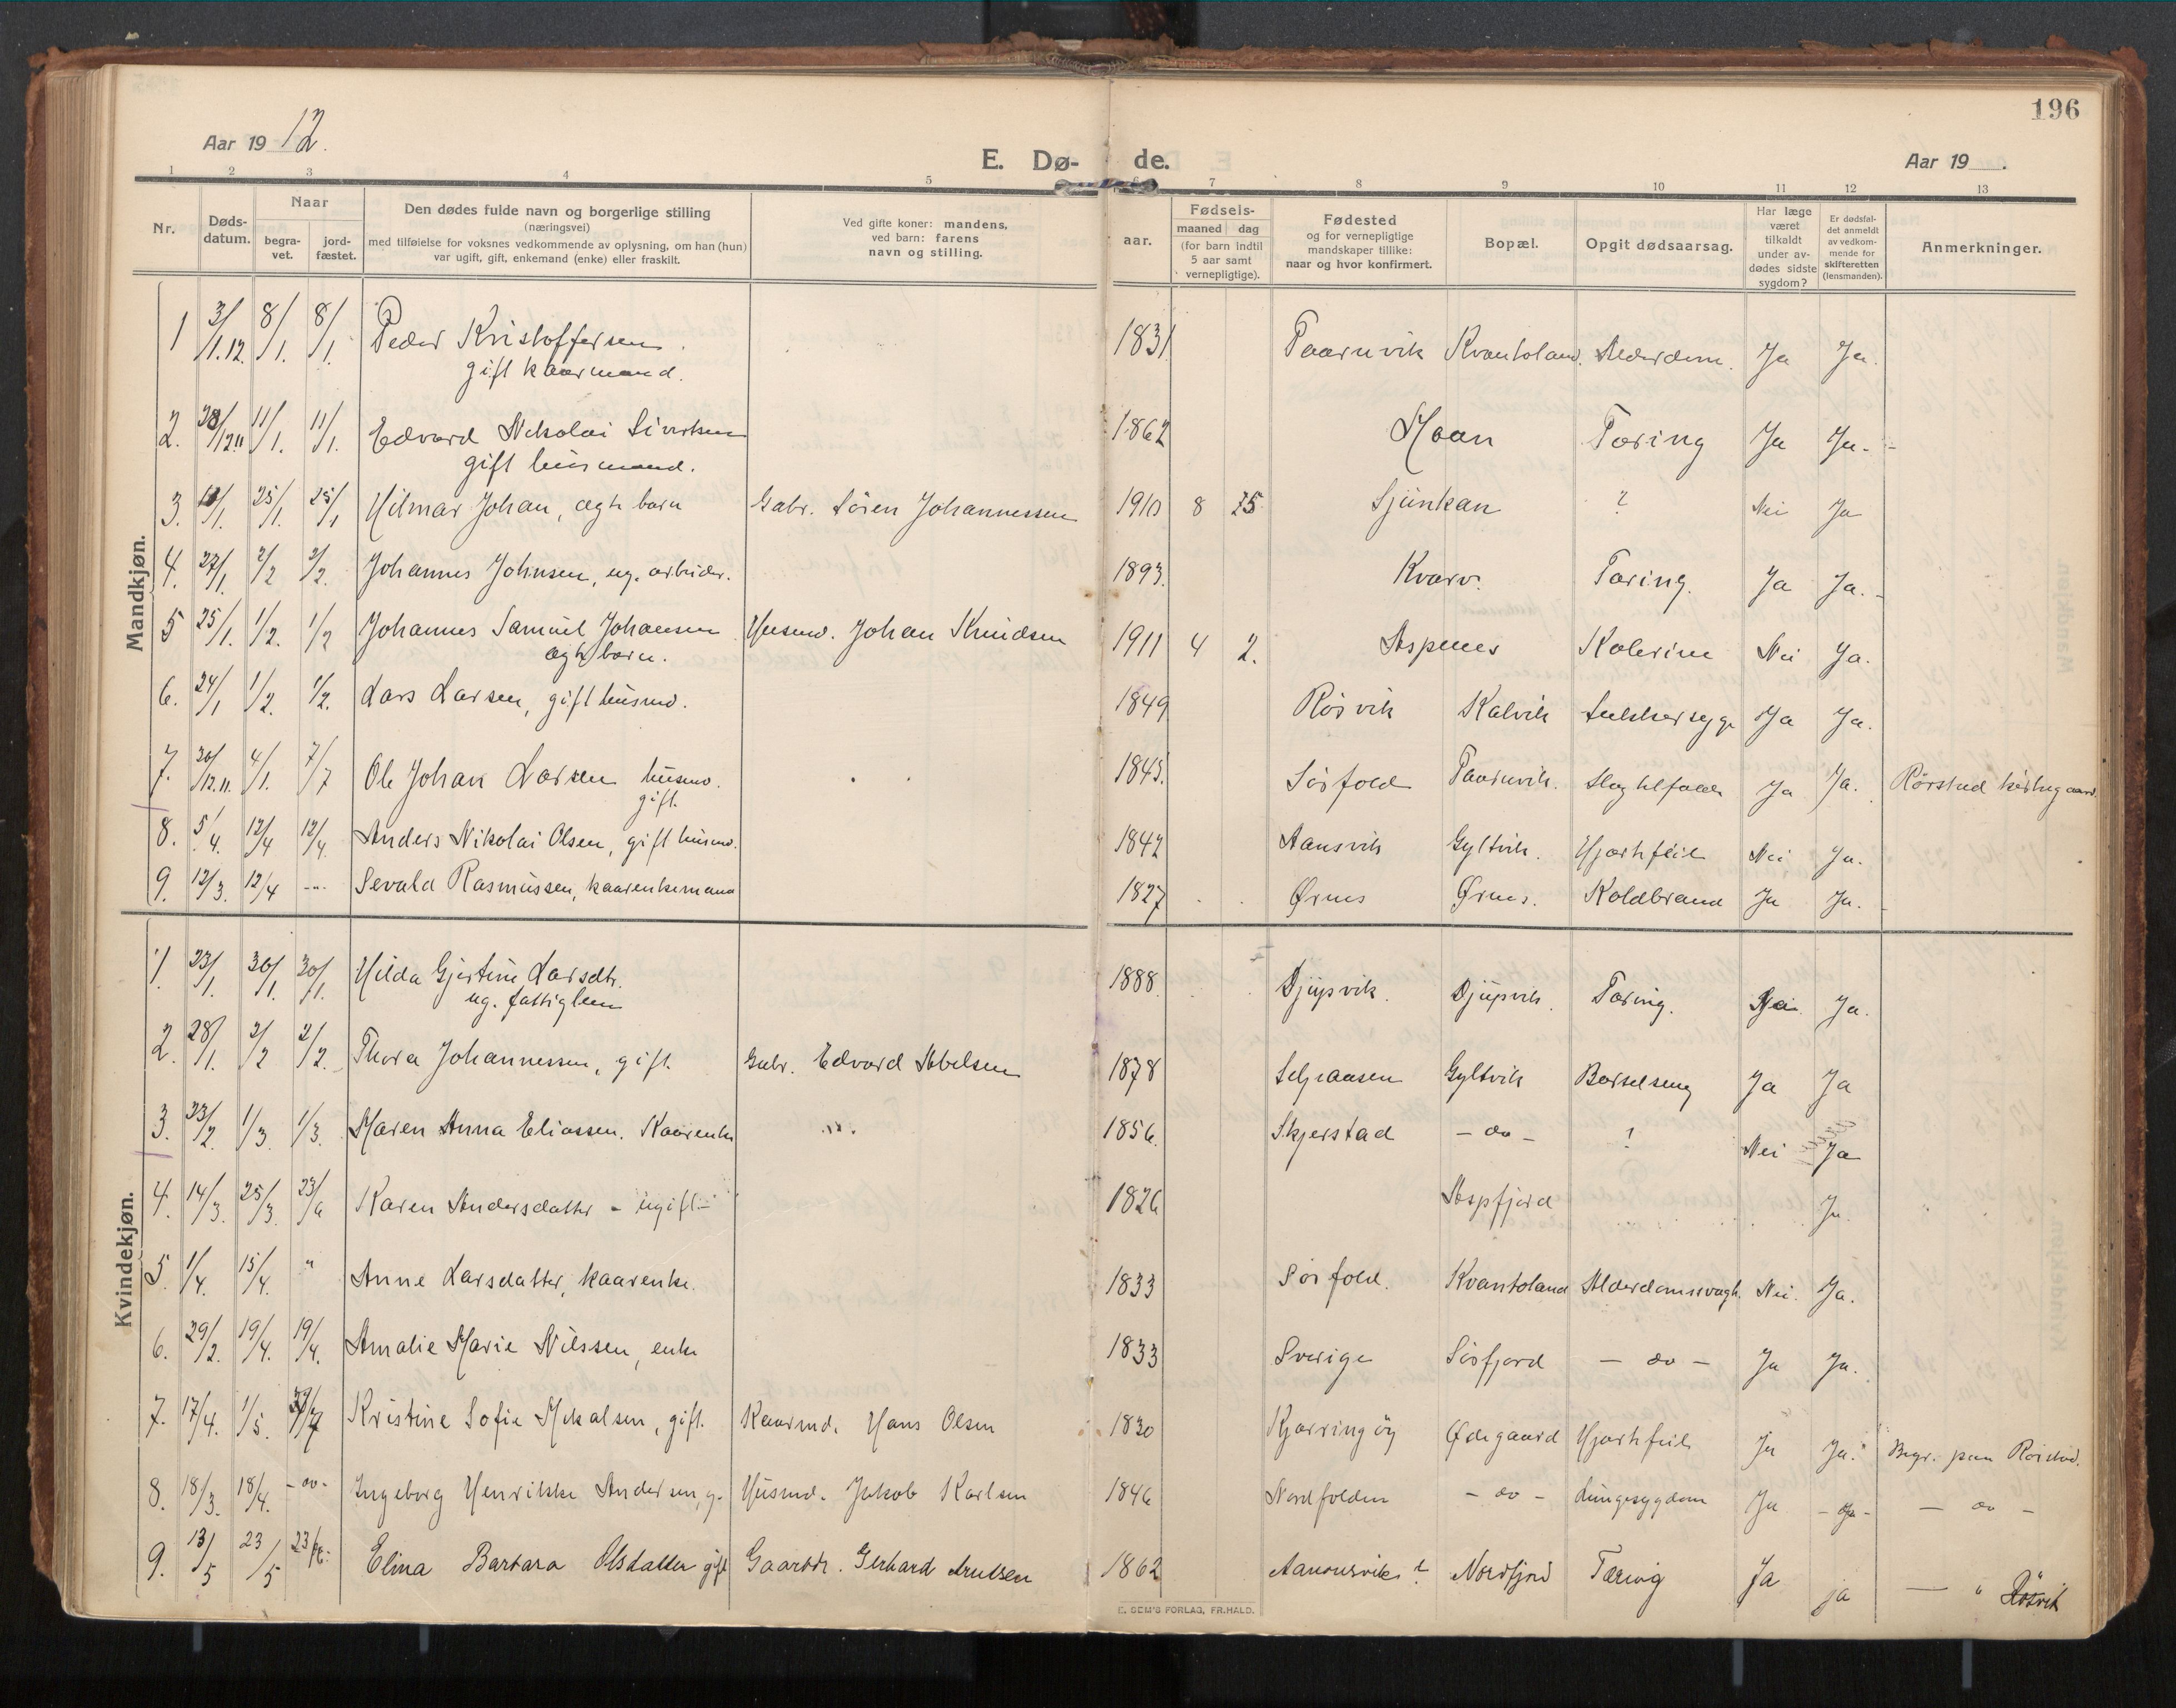 196
Aar 1912.
E. Dø- de.
Aar 19 .
1 2 3 4 5 6 7 8 9 10 11 12 13
Nr.
Døds-datum.
Naar
begra-vet.
jord-fæstet.
Den dødes fulde navn og borgerlige stilling
(næringsvei)
med tilføielse for voksnes vedkommende av oplysning, om han (hun)
var ugift, gift, enkemand (enke) eller fraskilt.
Ved gifte koner: mandens,
ved barn: farens
navn og stilling.
aar.
Fødsels-
maaned dag
(for barn indtil
5 aar samt
vernepligtige).
Fødested
og for vernepligtige
mandskaper tillike:
naar og hvor konfirmert.
Bopæl.
Opgit dødsaarsag.
Har læge
været
tilkaldt
under av-
dødes sidste
sygdom?
Er dødsfal-
det anmeldt
av vedkom-
mende for
skifteretten
(lensmanden).
Anmerkninger.
Mandkjøn.
1 3/1.12. 8/1. 8/1. Peder Kristoffersen. 1831 Taarnvik Kvantoland. Alderdom. Ja Ja.
gift kaarmand.
2. 28/12.11 11/1. 11/1. Edvard Nikolai Sivertsen 1862 Moan Tæring Ja Ja.
gift husmand.
3. /1. 25/1. 25/1 Hilmar Johan, ægte barn Gabr. Sören Johannessen 1910 8 25 Sjunkan ? Nei Ja
4. 27/1. 2/2 2/2. Johannes Johnsen, ug. arbeider. 1893. Kvarv. Tæring. Ja Ja.
5 25/1. 1/2. 1/2 Johannes Samuel Johansen Husmd. Johan Knudsen 1911 4 2. Aspenes Kolerine Nei Ja.
ægte barn.
6. 24/1 1/2. 1/2. Lars Larsen, gift husmd. 1849 Røsvik Kalvik Sukkersyge Ja Ja.
7. 30/12.11. 4/1. 7/7 Ole Johan Larsen husmd. 1845. Sörfold Taarnvik. Slagtilfælde Ja Ja. Rörstad kirkegaard.
gift
8. 5/4. 12/4 12/4. Anders Nikolai Olsen, gift husmd. 1842 Aansvik Gyltvik. Hjertefeil Nei Ja.
9. 12/3. 12/4 -"- Sevald Rasmussen, kaarenkemand 1827 Ørnes Ørnes. Koldbrand Ja Ja.
Kvindekjøn.
1. 23/1. 30/1. 30/1. Hilda Gjertine Larsdtr. 1888. Djupvik. Djupvik. Tæring. Nei Ja.
ug. fattiglem
2. 28/1. 2/2 2/2. Thora Johannessen, gift Gabr. Edvard Abelsen 1878 Seljeaasen Gyltvik Barselseng Ja Ja
3. 23/2. 1/3 1/3. Maren Anna Eliassen. Kaarenke -"- 1856. Skjerstad - do - ? Nei Ja
4. 14/3. 25/3. 23/6 Karen Andersdatter - ugift - 1826 Aspfjord Ja.
5. 1/4. 15/4. " Anne Larsdatter, kaarenke. 1833 Sörfold. Kvantoland Alderdomssvagh. Nei. Ja.
6. 29/2. 19/4. 19/4. Amalie Marie Nilssen, enke 1833 Sverige Sörfjord - do - Ja Ja.
7. 17/4. 1/5. /7 Kristine Sofie Mikalsen, gift. Kaarmd. Hans Olsen 1830 Kjerringöy Ødegaard Hjertefeil Ja Ja. Begr. paa Rörstad.
8. 18/3. 18/4. - do - Ingeborg Henrikke Andersen, g. Husmd. Jakob Karlsen 1846 Nordfolden - do - Lungesygdom Ja - Ja - - do -
9. 13/5 23/5 23/ Elina Barbara Olsdatter gift Gaardbr. Gerhard Arntsen 1862 Aanonsvik ? Nordfjord Tæring Ja ja - " Røsvik
E. SEM'S FORLAG, FR.HALD.